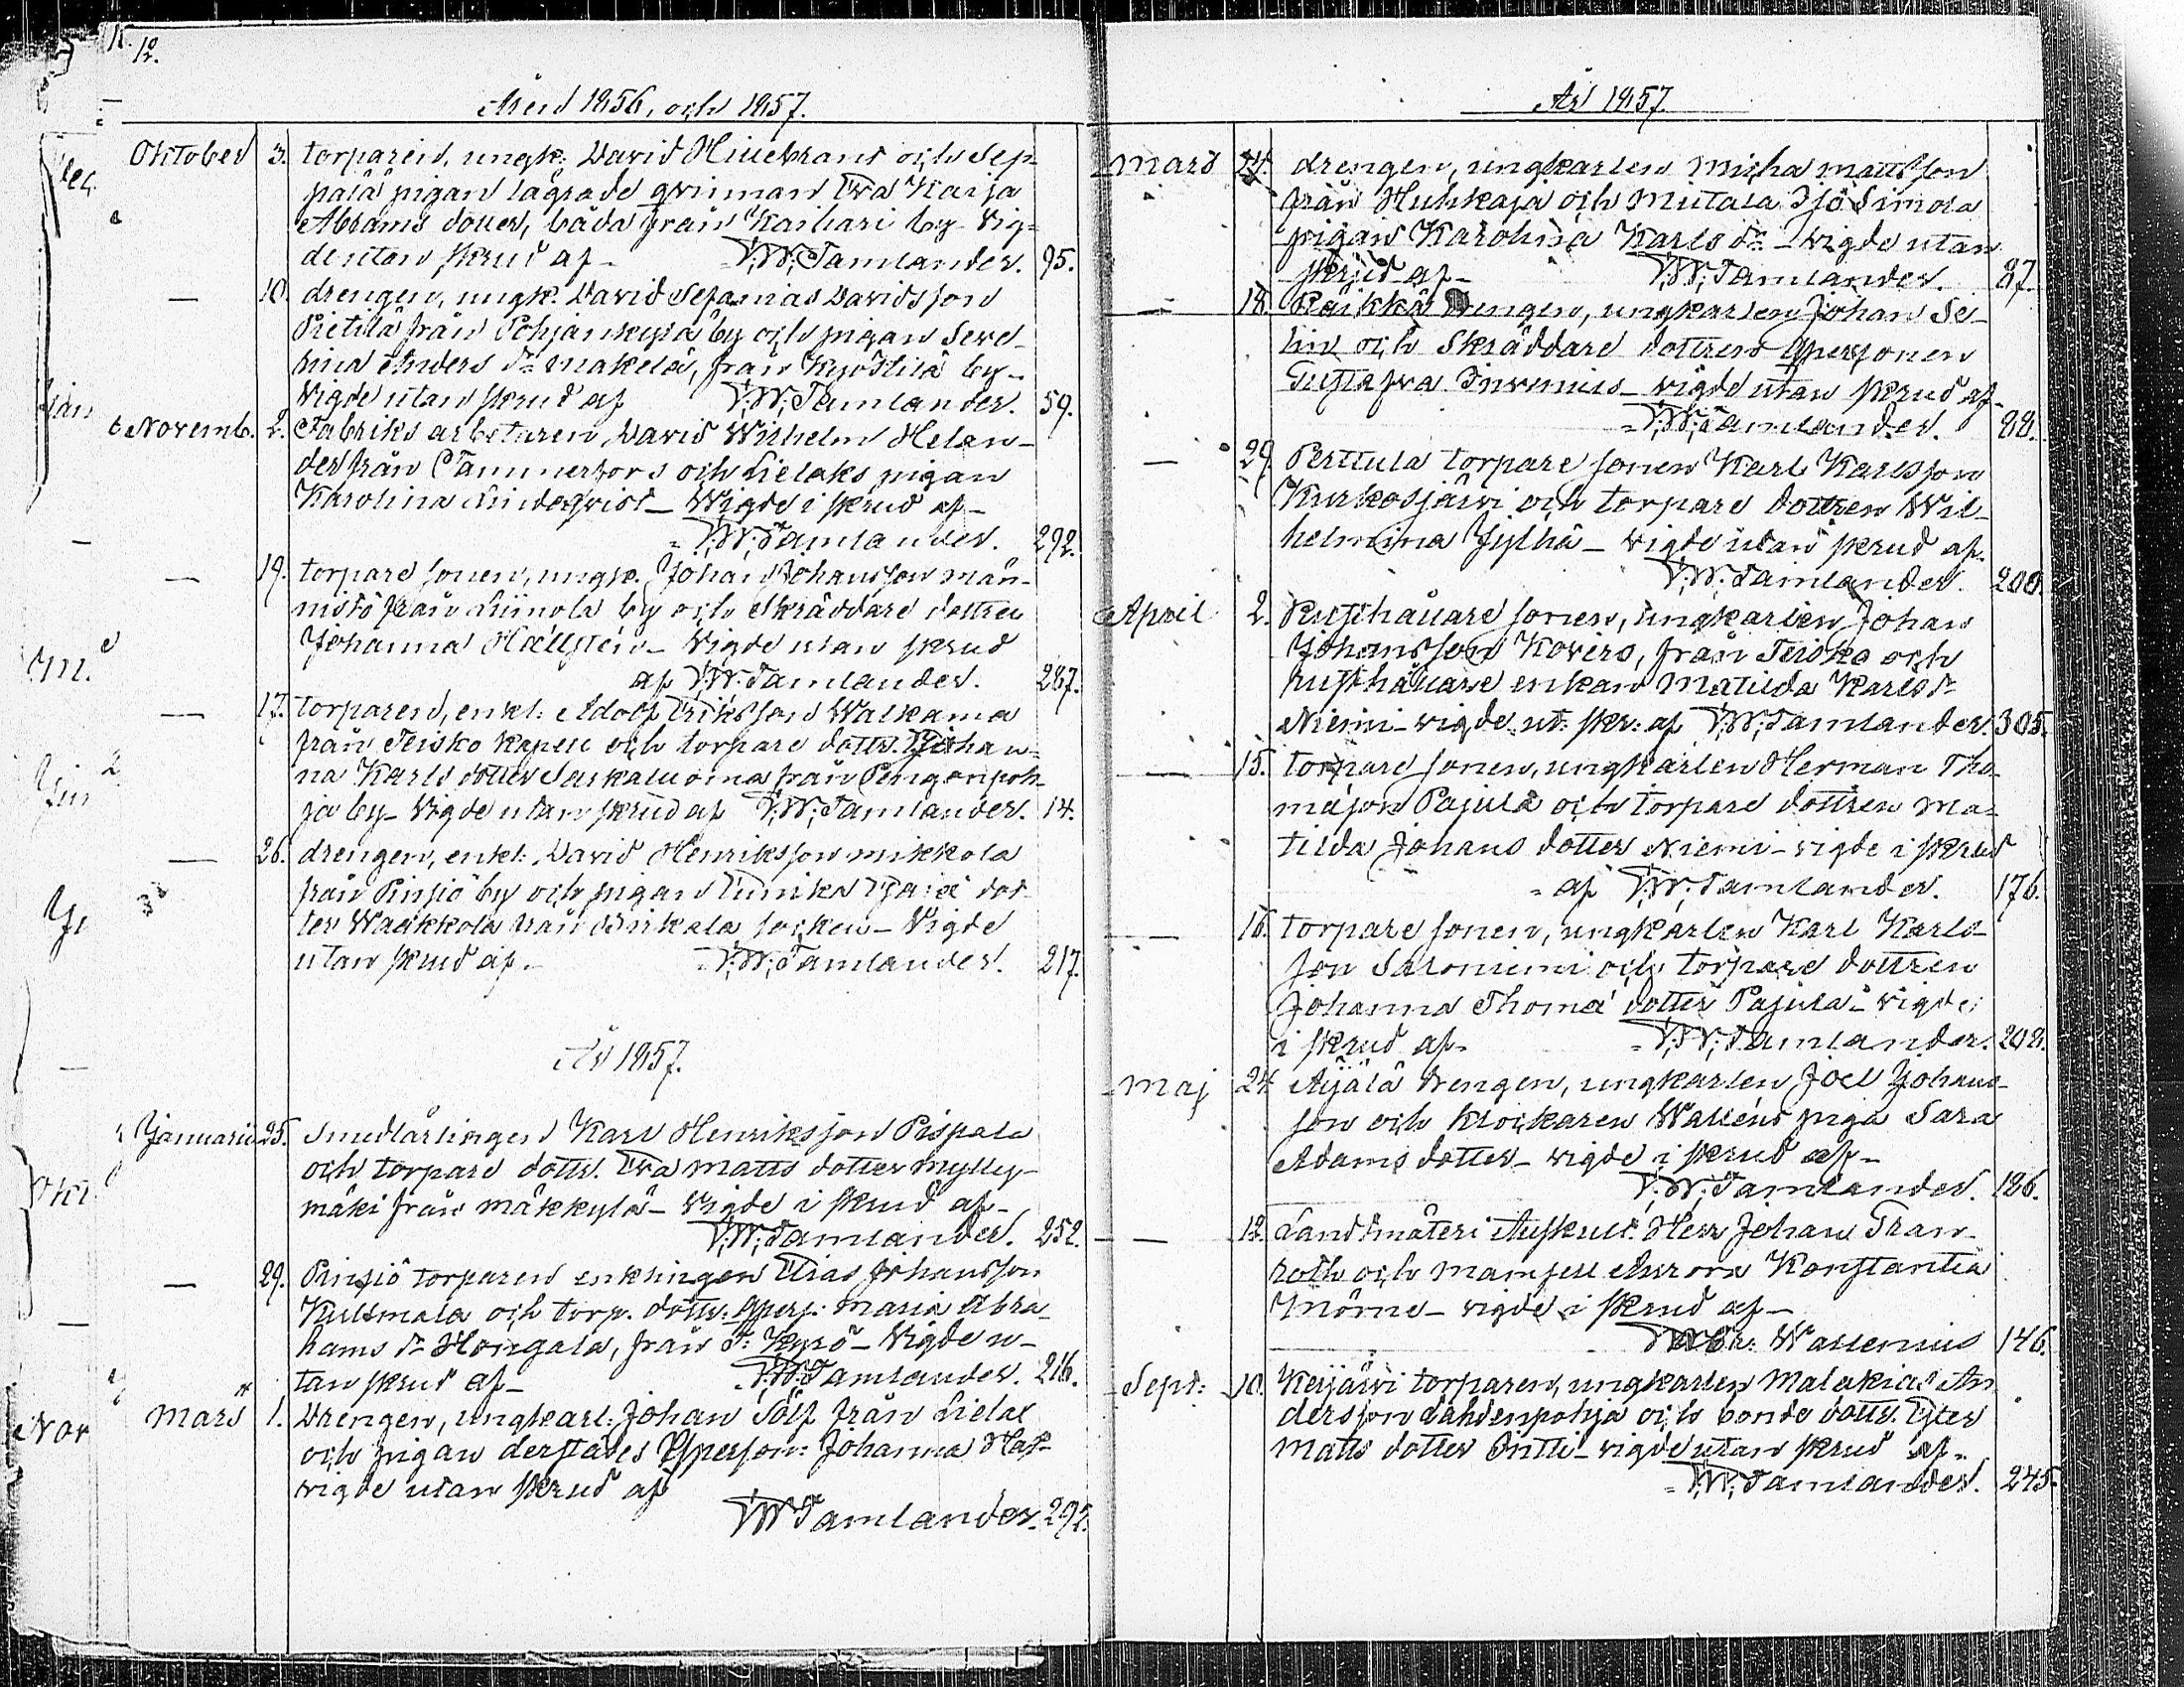 12.
Åren 1856, och 1857.
Oktober 3. torparen, ungk: David Hillebrand och Sep-
pälä pigan lägrade qvinnan Eva Kaisa
Abrams dotter, båda från Kaihari by- Vig-
de utan skrud af- V:W:Tamlander. 95.
— 10. drengen, ungk. David Sefanias Davidsson
Pietilä från Pohjankylä by och pigan Seve-
rina Anders dr Mäkelä, från Kyöstilä by-
Vigde utan skrud af V:W:Tamlander. 59.
Novemb. 2. Fabriks arbetaren, David Wilhelm Helan-
der från Tammerfors och Lielaks pigan
Karolina Lindeqvist- Wigde i skrud af-
V:W:Tamlander. 292.
— 19. torpare sonen, ungk. Johan Johansson Män-
nistö från Liinola by och Skräddare dottren
Johanna Hällsten- Vigde utan skrud
af V:W:Tamlander. 287.
— 17. torparen, enkl: Adolf Eriksson Walkama
från Teisko kapell och torpare dottr. Johan-
na Karls dotter Sarkaluoma från Pengonpoh-
ja by- Vigde utan skrud af V:W:Tamlander. 14.
— 26. drengen, enkl: David Henriksson Mikkola
från Pinsiö by och pigan Ulrika dot-
ter Waakkola från Birkala socken- Vigde
utan skrud af- V:W:Tamlander. 217.
År 1857.
Januarii 25. Smedlärlingen Karl Henriksson Pispala
och torpare dottr. Eva Matts dotter Mylly-
mäki från Mäkkylä- Vigde i skrud af-
V:W:Tamlander. 252.
— 29. Pinsiö torparen enklingen Elias Johansson
Kulsmala och torp. dottr: Qpers: Maria Abra-
hams dr Hongala, från T: Kyrö- Vigde u-
tan skrud af- V:W:Tamlander. 216.
Mars 1. Drengen, ungkarl: Johan Sölf från Lielax
och pigan derstädes Qperson: Johanna
vigde utan skrud af
VWTamlander. 292.
År 1857.
Mars drengen, ungkarlen Micha Mattsson
från Huhkaja och Mutala Isö Simola
pigan Karolina Karls dr- Wigde utan
skrud af- V:W:Tamlander. 87.
— 18. Räikkä Drengen, ungkarlen Johan Se-
lin och Skräddare dottren Qpersonen
Gustafva Invenius- vigde utan skrud af-
V:W:Tamlander. 88.
— 29. Perttula torpare sonen Karl Karlsson
Kurkosjärvi och torpare dottren Wil-
helmina Jylhä- vigde utan skrud af-
V:W:Tamlander. 200.
April 2. Rusthållare sonen, ungkarlen Johan
Johansson Kovero, från Teisko och
rusthållare enkan Matilda Karls dr
Niemi- vigde ut: skr: af V:W:Tamlander. 305.
— 15. torpare sonen, ungkarlen Herman Tho-
mäson Pajula och torpare dottren Ma-
tilda Johans dotter Niemi- vigde i skrud
af V:W:Tamlander. 176.
— 16. torpare sonen, ungkarlen Karl Karls-
son Saloniemi och torpare dottren
Johanna Thomä dotter Pajula- Vigde
i skrud af- V:W:Tamlander. 208.
Maj 24 Äijälä Drengen, ungkarlen Joel Johans-
son och Klockaren Walléns piga Sara
Adams dotter- vigde i skrud af-
V:W:Tamlander. 186.
— 12. Landtmäteri Auskult: Herr Johan Fran-
roth och Mamsell Aurora Konstantia
Mörne- vigde i skrud af-
Wallenius 146.
Sept: 10. Keijärvi torparen, ungkarlen Malakias An
dersson Lahdenpohja och bonde dottr. Ester
Matts dotter Intti- vigde utan skrud af-
V:W:Tamlander. 245.